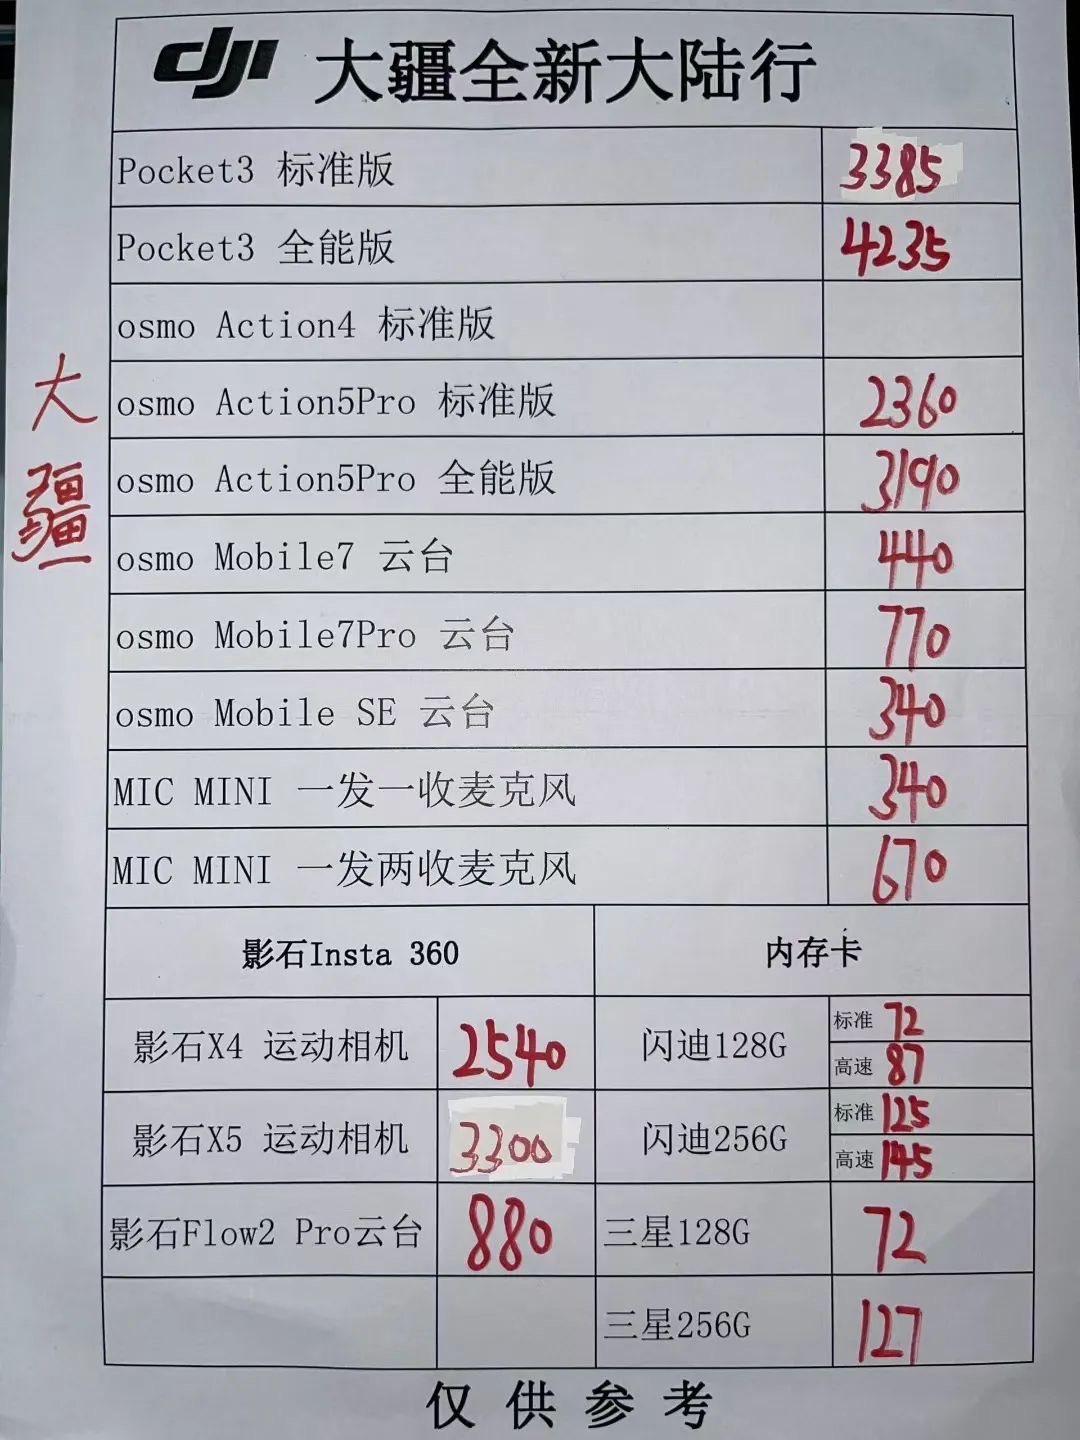 dji 大疆全新大陆行
Pocket3 标准版 3385
Pocket3 全能版 4235
osmo Action4 标准版
osmo Action5Pro 标准版 2360
osmo Action5Pro 全能版 3190
osmo Mobile7 云台 440
osmo Mobile7Pro 云台 770
osmo Mobile SE 云台 340
MIC MINI 一发一收麦克风 340
MIC MINI 一发两收麦克风 670
大疆
影石Insta 360 内存卡
影石X4 运动相机 2540 闪迪128G 标准 72
高速 87
影石X5 运动相机 3300 闪迪256G 标准 125
高速 145
影石Flow2 Pro云台 880 三星128G 72
三星256G 127
仅供参考